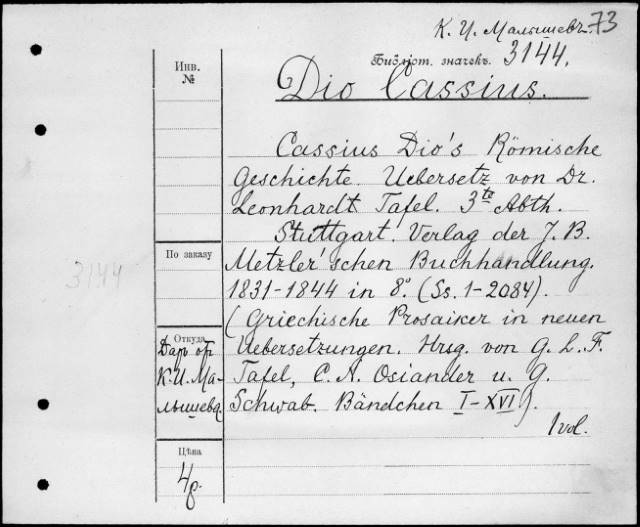 К. И. Малышевъ. 73
Библіот. значекъ. 3144.
Инв.
№
Dio Cassius.
Cassius Dio's Römische
Geschichte. Uebersetz von Dr.
Leonhardt Tafel. 3te Abth.
Stuttgart. Verlag der J. B.
Metzler'schen Buchhandlung.
1831-1844 in 8º. (Ss. 1-2084).
(Griechische Prosaiker in neuen
Uebersetzungen. Hrsg. von G. L. F.
Tafel, C. A. Osiander u. G.
Schwab. Bändchen I-XVI).
1 vol.
По заказу
3144
Откуда
Даръ от
К. И. Ма-
лышева
Цѣна
4 р.